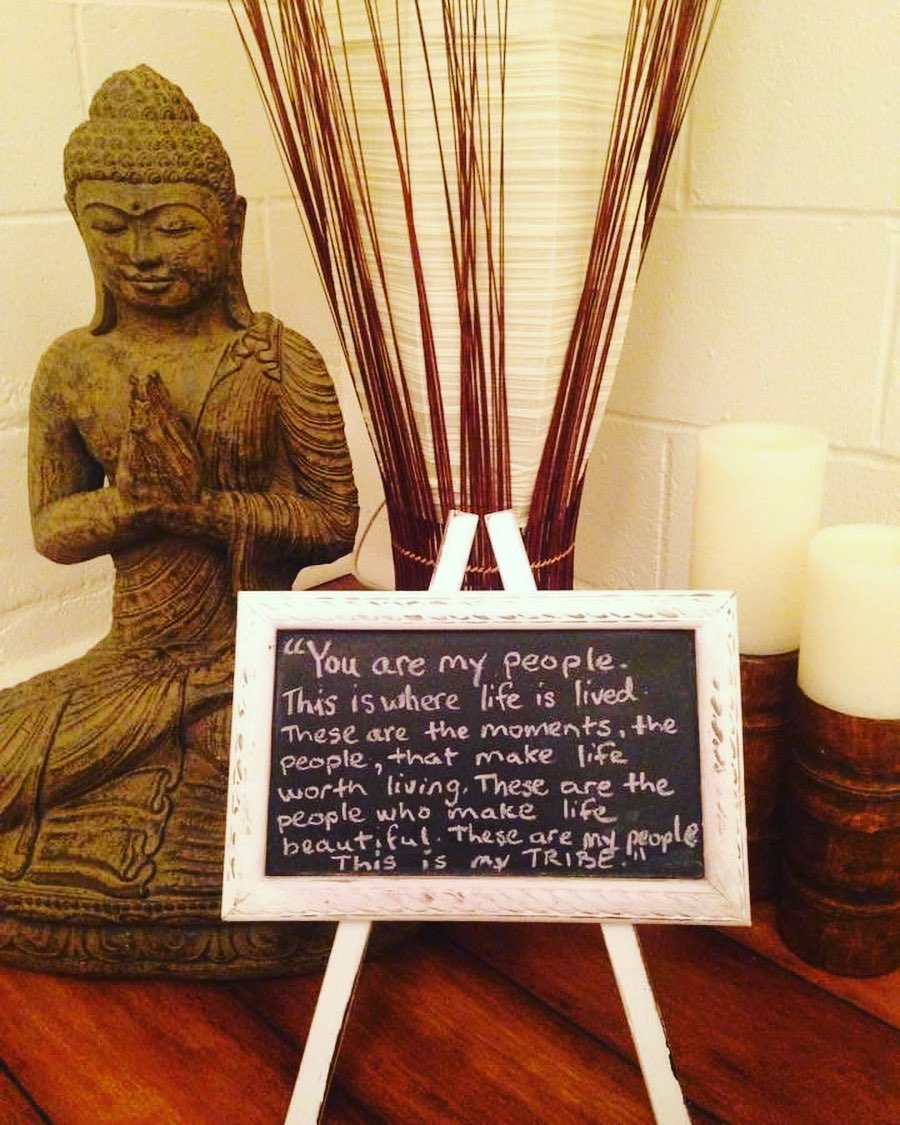 "You are my people.
This is where life is lived.
These are the moments, the
people, that make life
worth living. These are the
people who make life
beautiful. These are my people
This is my TRIBE."